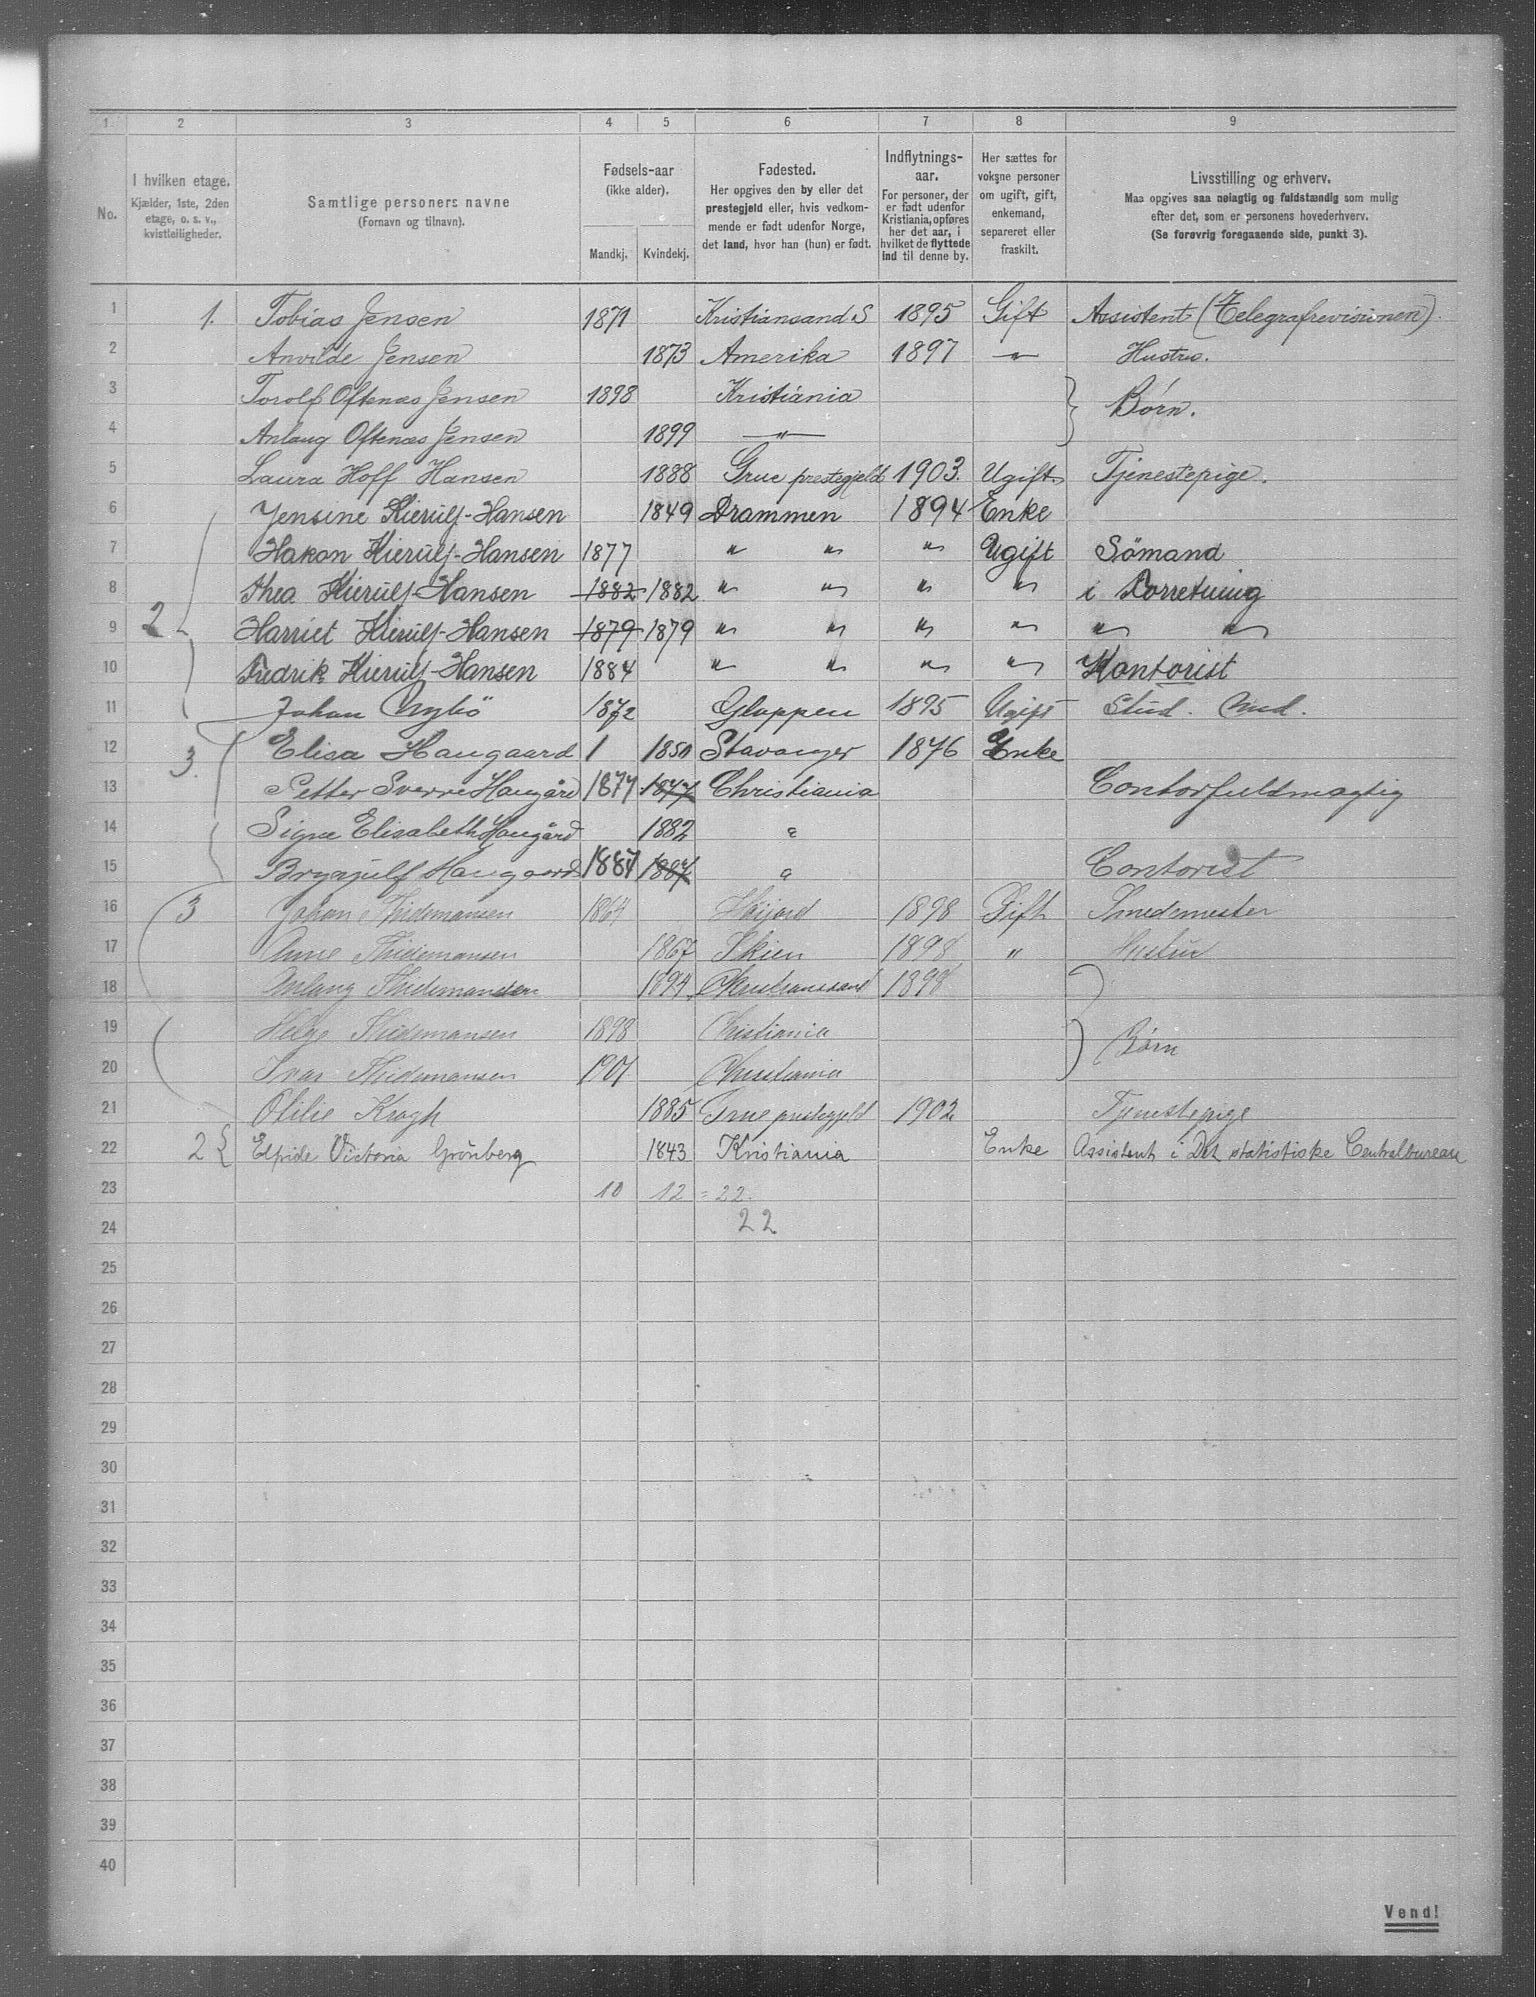 1 2 3 4 5 6 7 8 9
No.
I hvilken etage.
Kjælder, 1ste, 2den
etage, o. s. v.,
kvistleiligheder.
Samtlige personers navne
(Fornavn og tilnavn).
Fødsels-aar
(ikke alder).
Mandkj. Kvindekj.
Fødested.
Her opgives den by eller det
prestegjeld eller, hvis vedkom-
mende er født udenfor Norge,
det land, hvor han (hun) er født.
Indflytnings-
aar.
For personer, der
er født udenfor
Kristiania, opføres
her det aar, i
hvilket de flyttede
ind til denne by.
Her sættes for
voksne personer
om ugift, gift,
enkemand,
separeret eller
fraskilt.
Livsstilling og erhverv.
Maa opgives saa nøiagtig og fuldstændig som mulig
efter det, som er personens hovederhverv.
(Se forøvrig foregaaende side, punkt 3).
1 1. Tobias Jensen 1871 Kristiansand S 1895 Gift Assistent (Telegrafrevisionen).
2 Anvilde Jensen 1873 Amerika 1897 " Hustru.
3 Torolf Oftenæs Jensen 1898 Kristiania } Børn.
4 Anlaug Oftenæs Jensen 1899 "
5 Laura Hoff Hansen 1888 Grue prestegjeld 1903. Ugift. Tjenestepige.
6 Jensine Kierulf-Hansen 1849 Drammen 1894 Enke
7 Hakon Kierulf-Hansen 1877 " " " Ugift Sömand
8 2 Thea Kierulf-Hansen 1882 1882 " " " " i Forretning
9 Harriet Kierulf-Hansen 1879 1879 " " " " " "
10 Fredrik Kierulf-Hansen 1884 " " " " Kontorist
11 Johan Nybö 1872 Gloppen 1895 Ugift Stud. Med.
12 3. Elisa Haugaard 1 1850 Stavanger 1876 Enke
13 Petter Sverre Haugård 1877 1877 Christiania Contorfuldmægtig
14 Signe Elisabeth Haugård 1882 "
15 Brynjulf Haugaard 1887 1887 " Contorist
16 3 Johan Thidemansen 1864 1898 Gift Smedmester
17 Anne Thidemansen 1867 Skien 1898 " Hustru
18 Anlaug Thidemansen 1894 Christiansand 1898
19 Helge Thidemansen 1898 Christiania } Børn
20 Ivar Thidemansen 1901 Christiania
21 Otilie Krogh 1885 Grue prestegjeld 1902 Tjenestepige
22 2 { Elfride Victoria Grönberg 1843 Kristiania Enke Assistent i Det statistiske Centralbureau
23 10 12 = 22.
24 22
25
26
27
28
29
30
31
32
33
34
35
36
37
38
39
40
Vend!